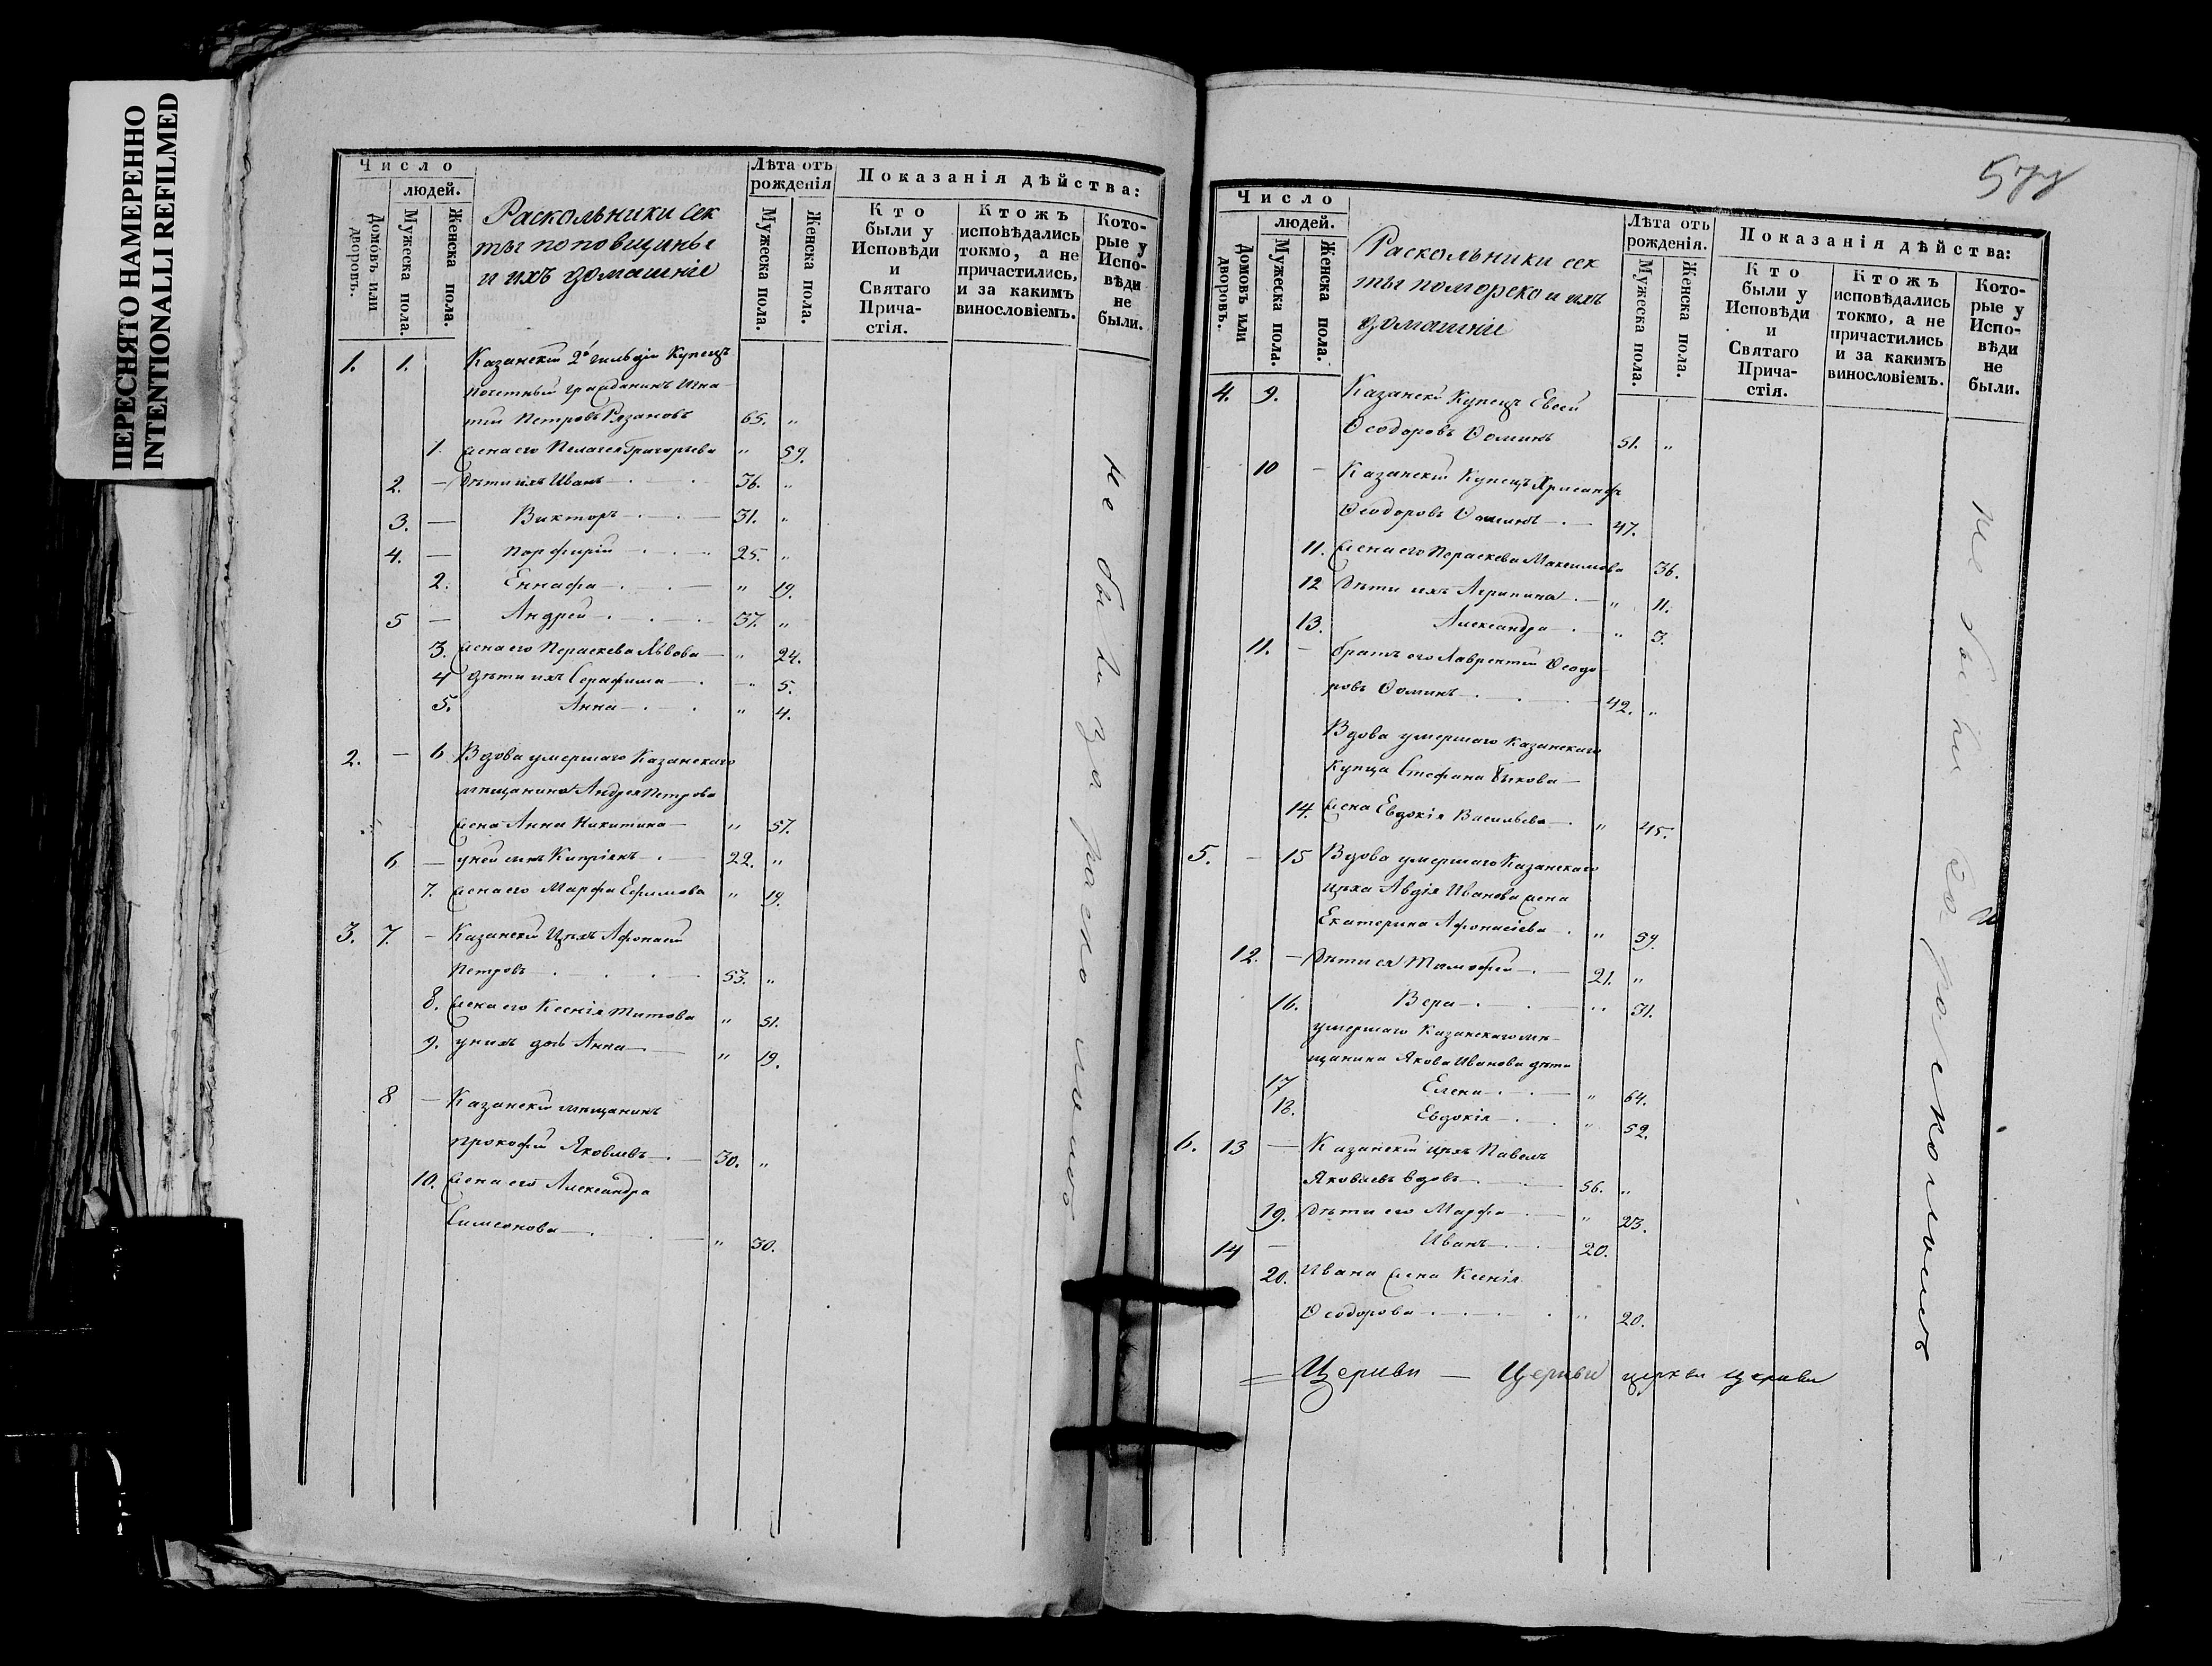 ПЕРЕСНЯТО НАМЕРЕННО
INTENTIONALLI REFILMED
Число
людей.
Домовъ или дворовъ.
Мужеска пола.
Женска пола.
Раскольники сек
ты поповщины
и ихъ домашніе
Лѣта отъ рожденія
Мужеска пола.
Женска пола.
Показанія дѣйства:
Кто были у Исповѣди и Святаго Прича-стія.
Ктожъ исповѣдались токмо, а не причастились, и за какимъ винословіемъ.
Кото-рые у Испо-вѣди не были.
1. 1. Казанскій 2й гильдіи Купецъ
почетный гражданинъ Игна
тій Петровъ Рязановъ 65. „
1. жена его Пелагея Григорьева „ 59.
2. — Дѣти ихъ Иванъ 36. „
3. — Викторъ 31. „
4. — Порфирій 25. „
2. Еннафа „ 19.
5 — Андрей 37. „
3. жена его Параскева Львова „ 24.
4 дѣти ихъ Серафима „ 5.
5. Анна „ 4.
2. — 6 Вдова умершаго Казанскаго
мѣщанина Андрея Петрова
жена Анна Никитина „ 57.
6 — у ней сынъ Кипріянъ 22. „
7. жена его Марфа Ефимова „ 19.
3. 7. — Казанскій Цѣхъ Афонасій
Петровъ 53. „
8. жена его Ксенія Титова „ 51.
9. у нихъ дочь Анна „ 19.
8 — Казанскій мѣщанинъ
Прокофій Яковлевъ 30. „
10. жена его Александра
Симеонова „ 30.
не были за расколомъ
577
Число
людей.
Домовъ или дворовъ.
Мужеска пола.
Женска пола.
Раскольники сек
ты поморско и ихъ
домашніе
Лѣта отъ рожденія.
Мужеска пола.
Женска пола.
Показанія дѣйства:
Кто были у Исповѣди и Святаго Прича-стія.
Ктожъ исповѣдались токмо, а не причастились и за какимъ винословіемъ.
Кото-рые у Испо-вѣди не были.
4. 9. Казанскій Купецъ Евсей
Ѳеодоровъ Ѳоминъ 51. „
10 — Казанскій Купецъ Хрисанфъ
Ѳеодоровъ Ѳоминъ 47.
11. жена его Параскева Максимова 36.
12 Дѣти ихъ Агрипина „ 11.
13. Александра „ 3.
11. — братъ его Лаврентій Ѳеодо
ровъ Ѳоминъ 42. „
Вдова умершаго Казанскаго
Купца Стефана Быкова
14. жена Евдокія Васильева „ 45.
5. — 15 Вдова умершаго Казанскаго
цѣха Авдія Иванова жена
Екатерина Афонасіева „ 59.
12. — Дѣти ея Тимофей 21. „
16. Вера „ 31.
умершаго Казанскаго мѣ-
щанина Якова Иванова дѣти
17 Елена „ 64.
18. Евдокія „ 52.
6. 13 — Казанскій цѣхъ Павелъ
Яковлевъ вдовъ 56. „
19. Дѣти его Марфа „ 23.
14 — Иванъ 20.
20. Ивана жена Ксенія
Ѳеодорова „ 20.
Церкви — Церкви церкви церкви
не были за расколомъ